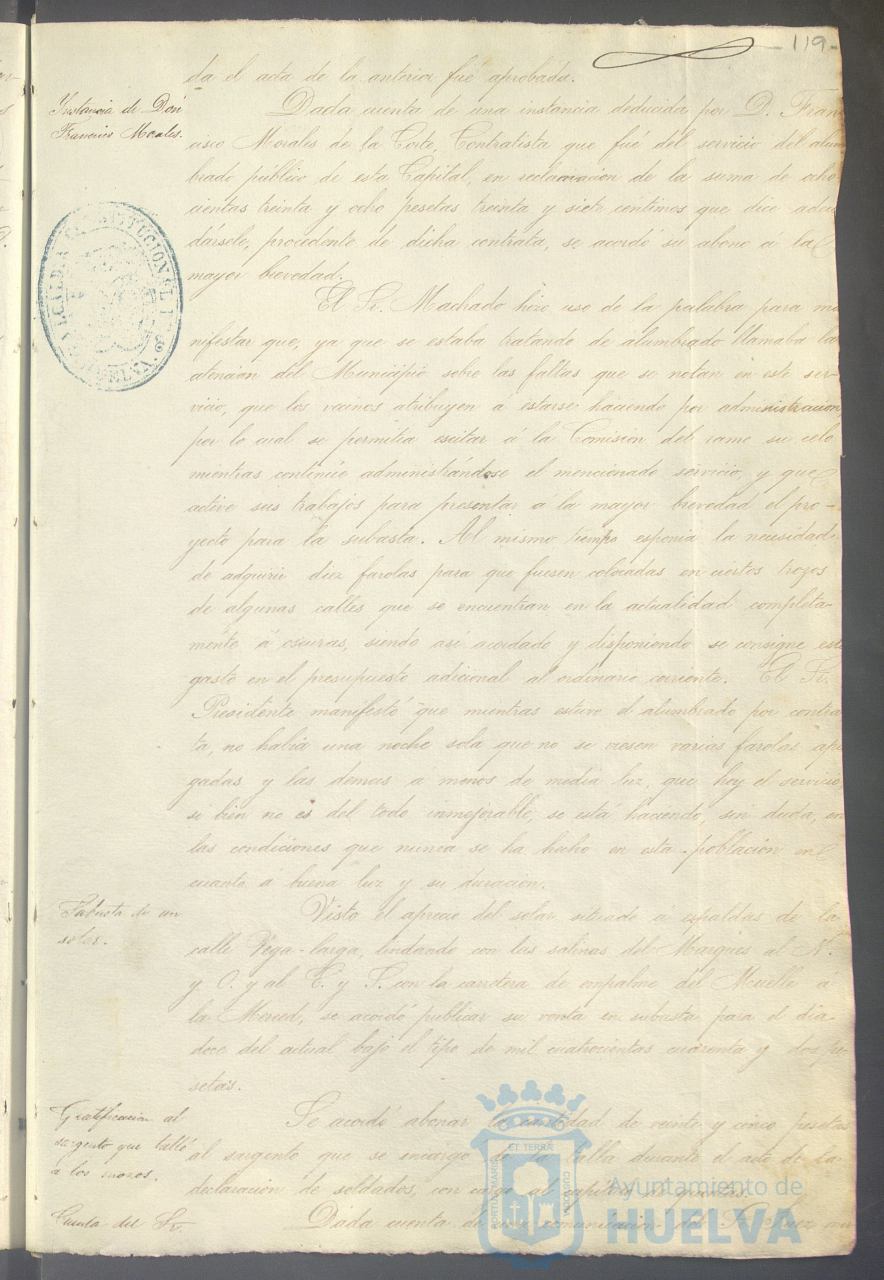 119
da el acta de la anterior fué aprobada.
Instancia de Don
Francisco Morales.
Dada cuenta de una instancia deducida por D. Fran
cisco Morales de la Corte, Contratista que fué del servicio del alum
brado público de esta Capital, en reclamacion de la suma de ocho
cientas treinta y ocho pesetas treinta y siete centimos que dice adeu
dársele, procedente de dicha contrata, se acordó su abono á la
mayor brevedad.
El Sr. Machado hizo uso de la palabra para ma
nifestar que, ya que se estaba tratando de alumbrado llamaba la
atencion del Municipio sobre las faltas que se notan en este ser-
vicio, que los vecinos atribuyen á estarse haciendo por administracion,
por lo cual se permitia escitar á la Comision del ramo su celo
mientras continúe administrándose el mencionado servicio, y que
active sus trabajos para presentar á la mayor brevedad el pro-
yecto para la subasta. Al mismo tiempo esponia la necesidad
de adquirir diez farolas para que fuesen colocadas en ciertos trozos
de algunas calles que se encuentran en la actualidad completa-
mente á oscuras, siendo así acordado y disponiendo se consigne este
gasto en el presupuesto adicional al ordinario corriente. El Sr.
Presidente manifestó que mientras estuvo el alumbrado por contra
ta, no habia una noche sola que no se viesen varias farolas apa
gadas y las demas á menos de media luz, que hoy el servicio,
si bien no es del todo inmejorable, se está haciendo, sin duda, en
las condiciones que nunca se ha hecho en esta poblacion en
cuanto á buena luz y su duracion.
Subasta de un
solar.
Visto el aprecio del solar situado á espaldas de la
calle Vega-larga, lindando con las salinas del Marques al N.
y O. y al E. y S. con la carretera de empalme del Muelle á
la Merced, se acordó publicar su venta en subasta para el dia
doce del actual bajo el tipo de mil cuatrocientas cuarenta y dos pe
setas.
Gratificacion al
sargento que talló
á los mozos.
Se acordó abonar la cantidad de veinte y cinco pesetas
al sargento que se encargó de la talla durante el acto de la
declaracion de soldados, con cargo al capítulo de
Cuenta del Sr.
Dada cuenta de una comunicacion del Sr. Juez
ALCALDIA CONSTITUCIONAL
HUELVA
PORTUS MARIS
ET TERRÆ
CUSTODIA
Ayuntamiento de
HUELVA